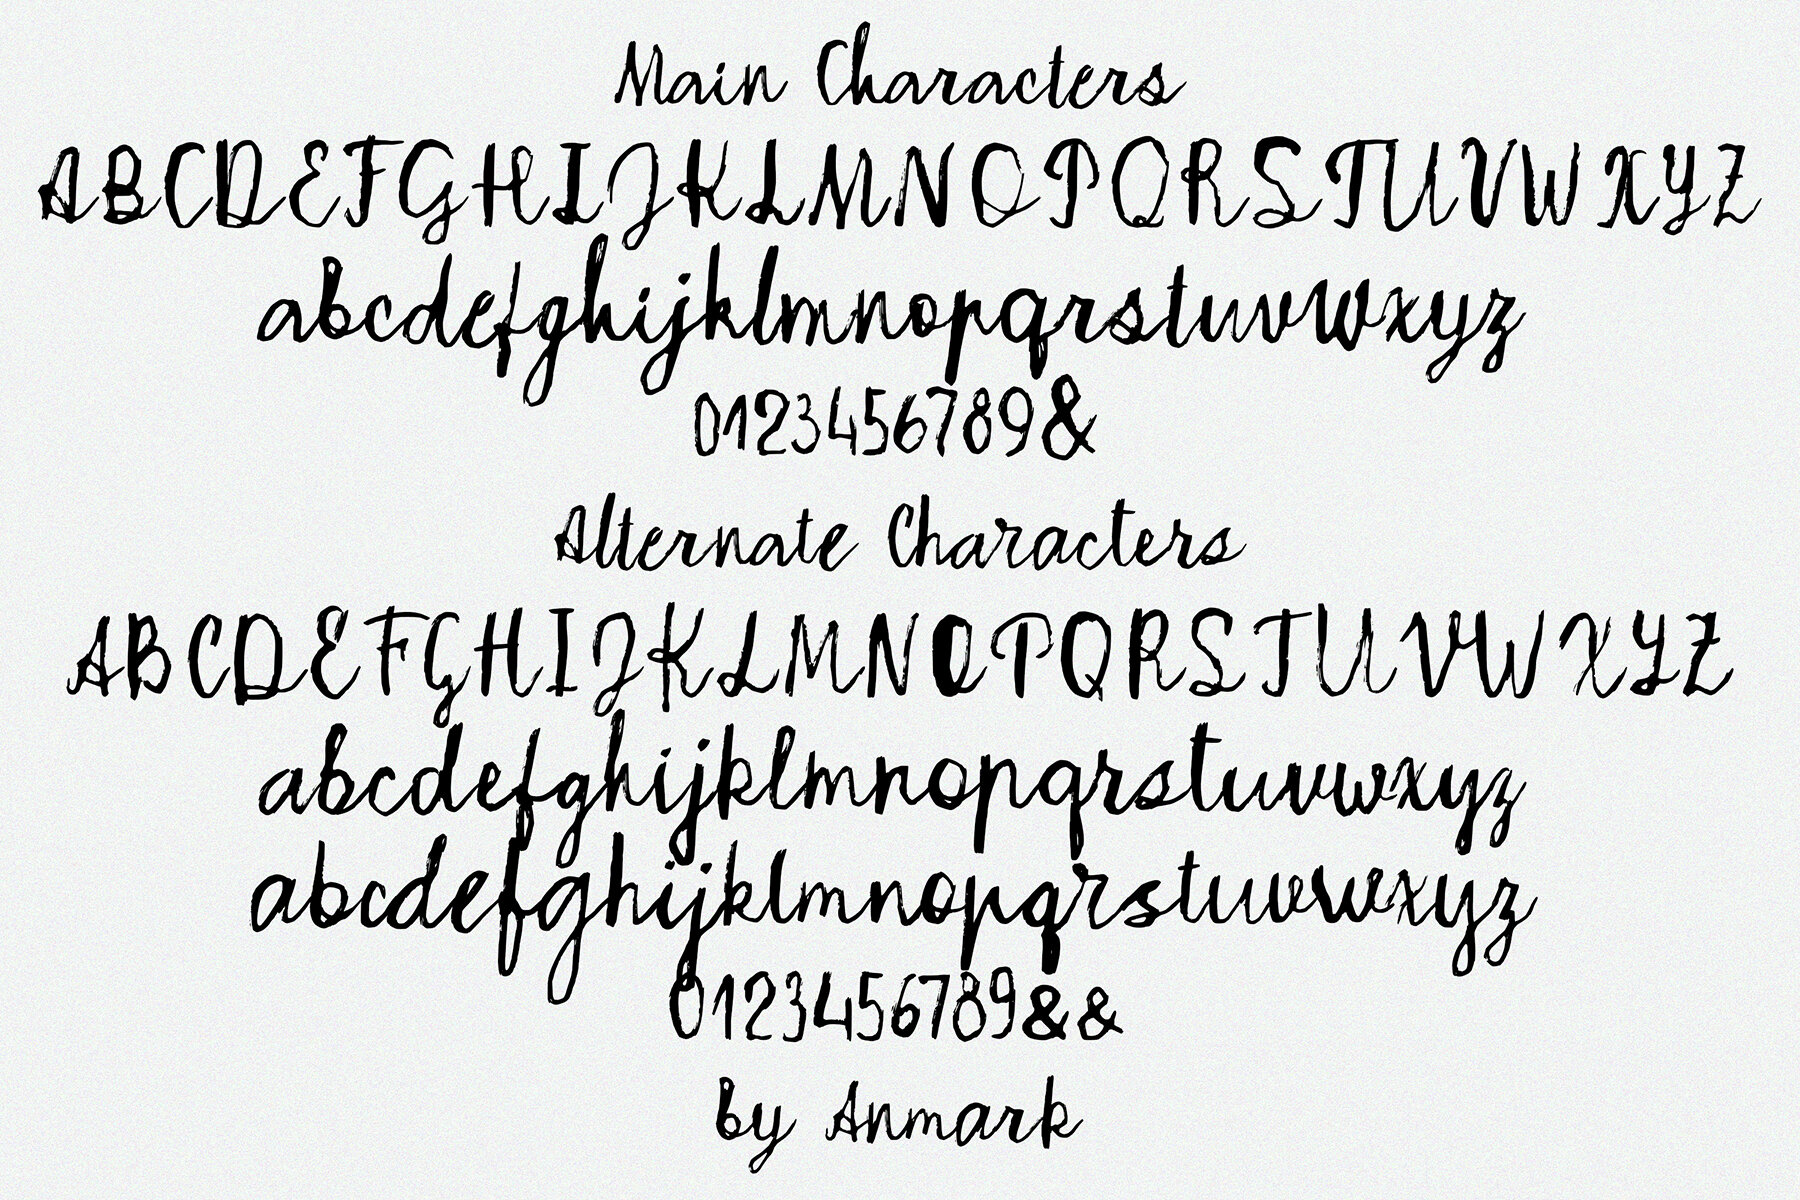 Main Characters
ABCDEFGHIJKLMNOPQRSTUVWXYZ
abcdefghijklmnopqrstuvwxyz
0123456789&
Alternate Characters
ABCDEFGHIJKLMNOPQRSTUVWXYZ
abcdefghijklmnopqrstuvwxyz
abcdefghijklmnopqrstuvwxyz
0123456789&&
by Anmark